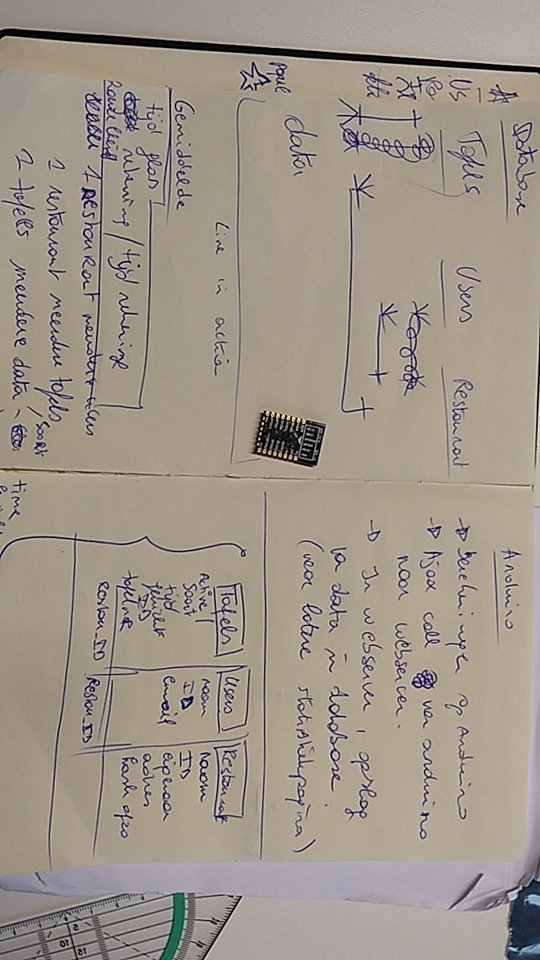 Database
Tafels Users Restaurant
data
Live in actie
Gemiddelde
tijd glas
rekening / tijd rekening
1 Restaurant meerdere users
1 restaurant meerdere tafels
1 tafels meerdere data
/ soort
Paul
Arduino
→ Berekeningen op Arduino
→ Ajax call van arduino
naar webserver.
→ In webserver, opslag
la data in database.
(voor latere statistiekpagina)
Tafels Users Restaurant
Active / naam Naam
Soort ID ID
tijd email eigenaar
gewicht adres
ID
tafelnr
Restau_ID Restau_ID
time